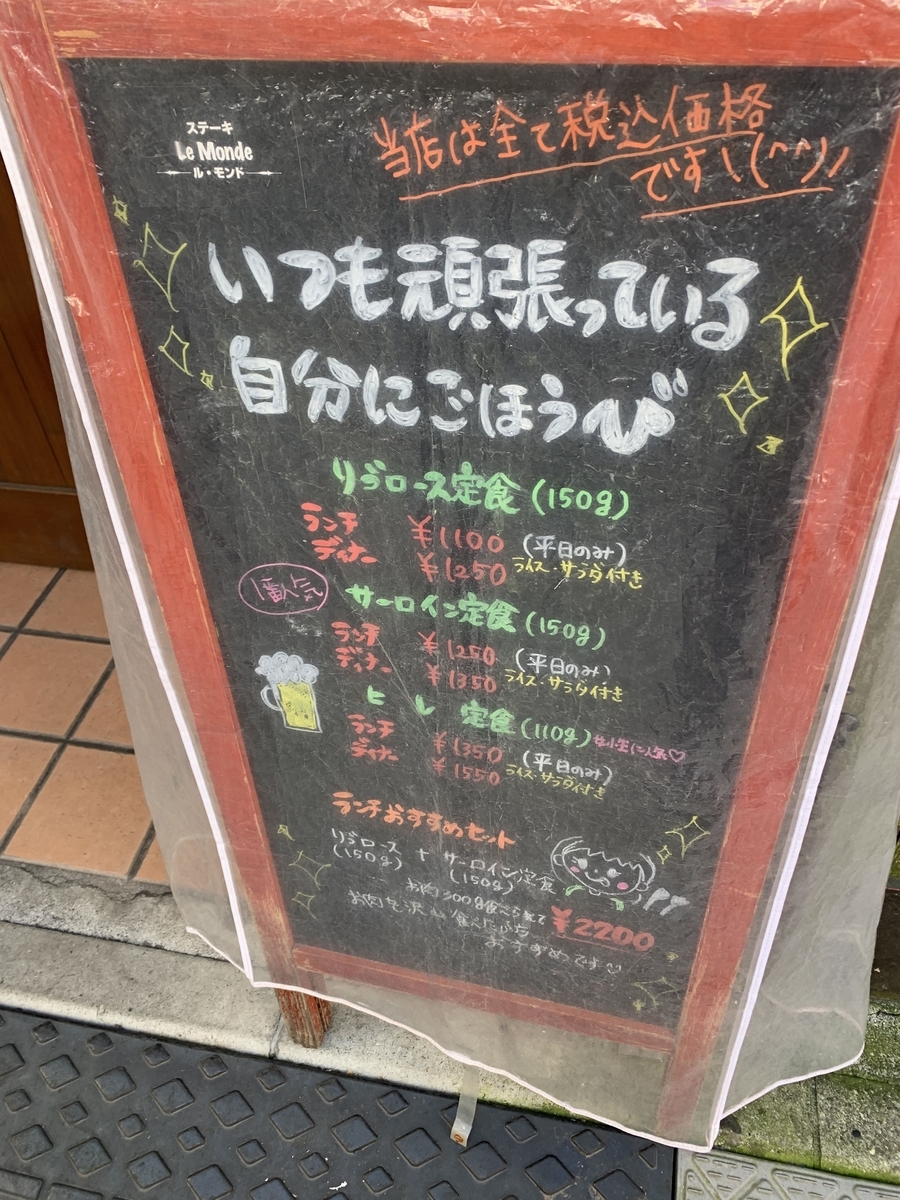 ステーキ
Le Monde
ル・モンド
当店は全て税込価格
です\(^^)/
いつも頑張っている
自分にごほうび
リブロース定食(150g)
ランチ ¥1100 (平日のみ)
ディナー ¥1250 ライス・サラダ付き
1番人気
サーロイン定食(150g)
ランチ ¥1250 (平日のみ)
ディナー ¥1350 ライス・サラダ付き
ヒレ定食(110g)女性に人気♡
ランチ ¥1350 (平日のみ)
ディナー ¥1550 ライス・サラダ付き
ランチおすすめセット
リブロース + サーロイン定食
(150g) (150g)
お肉300g食べられて ¥2200
お肉を沢山食べたい方
おすすめです